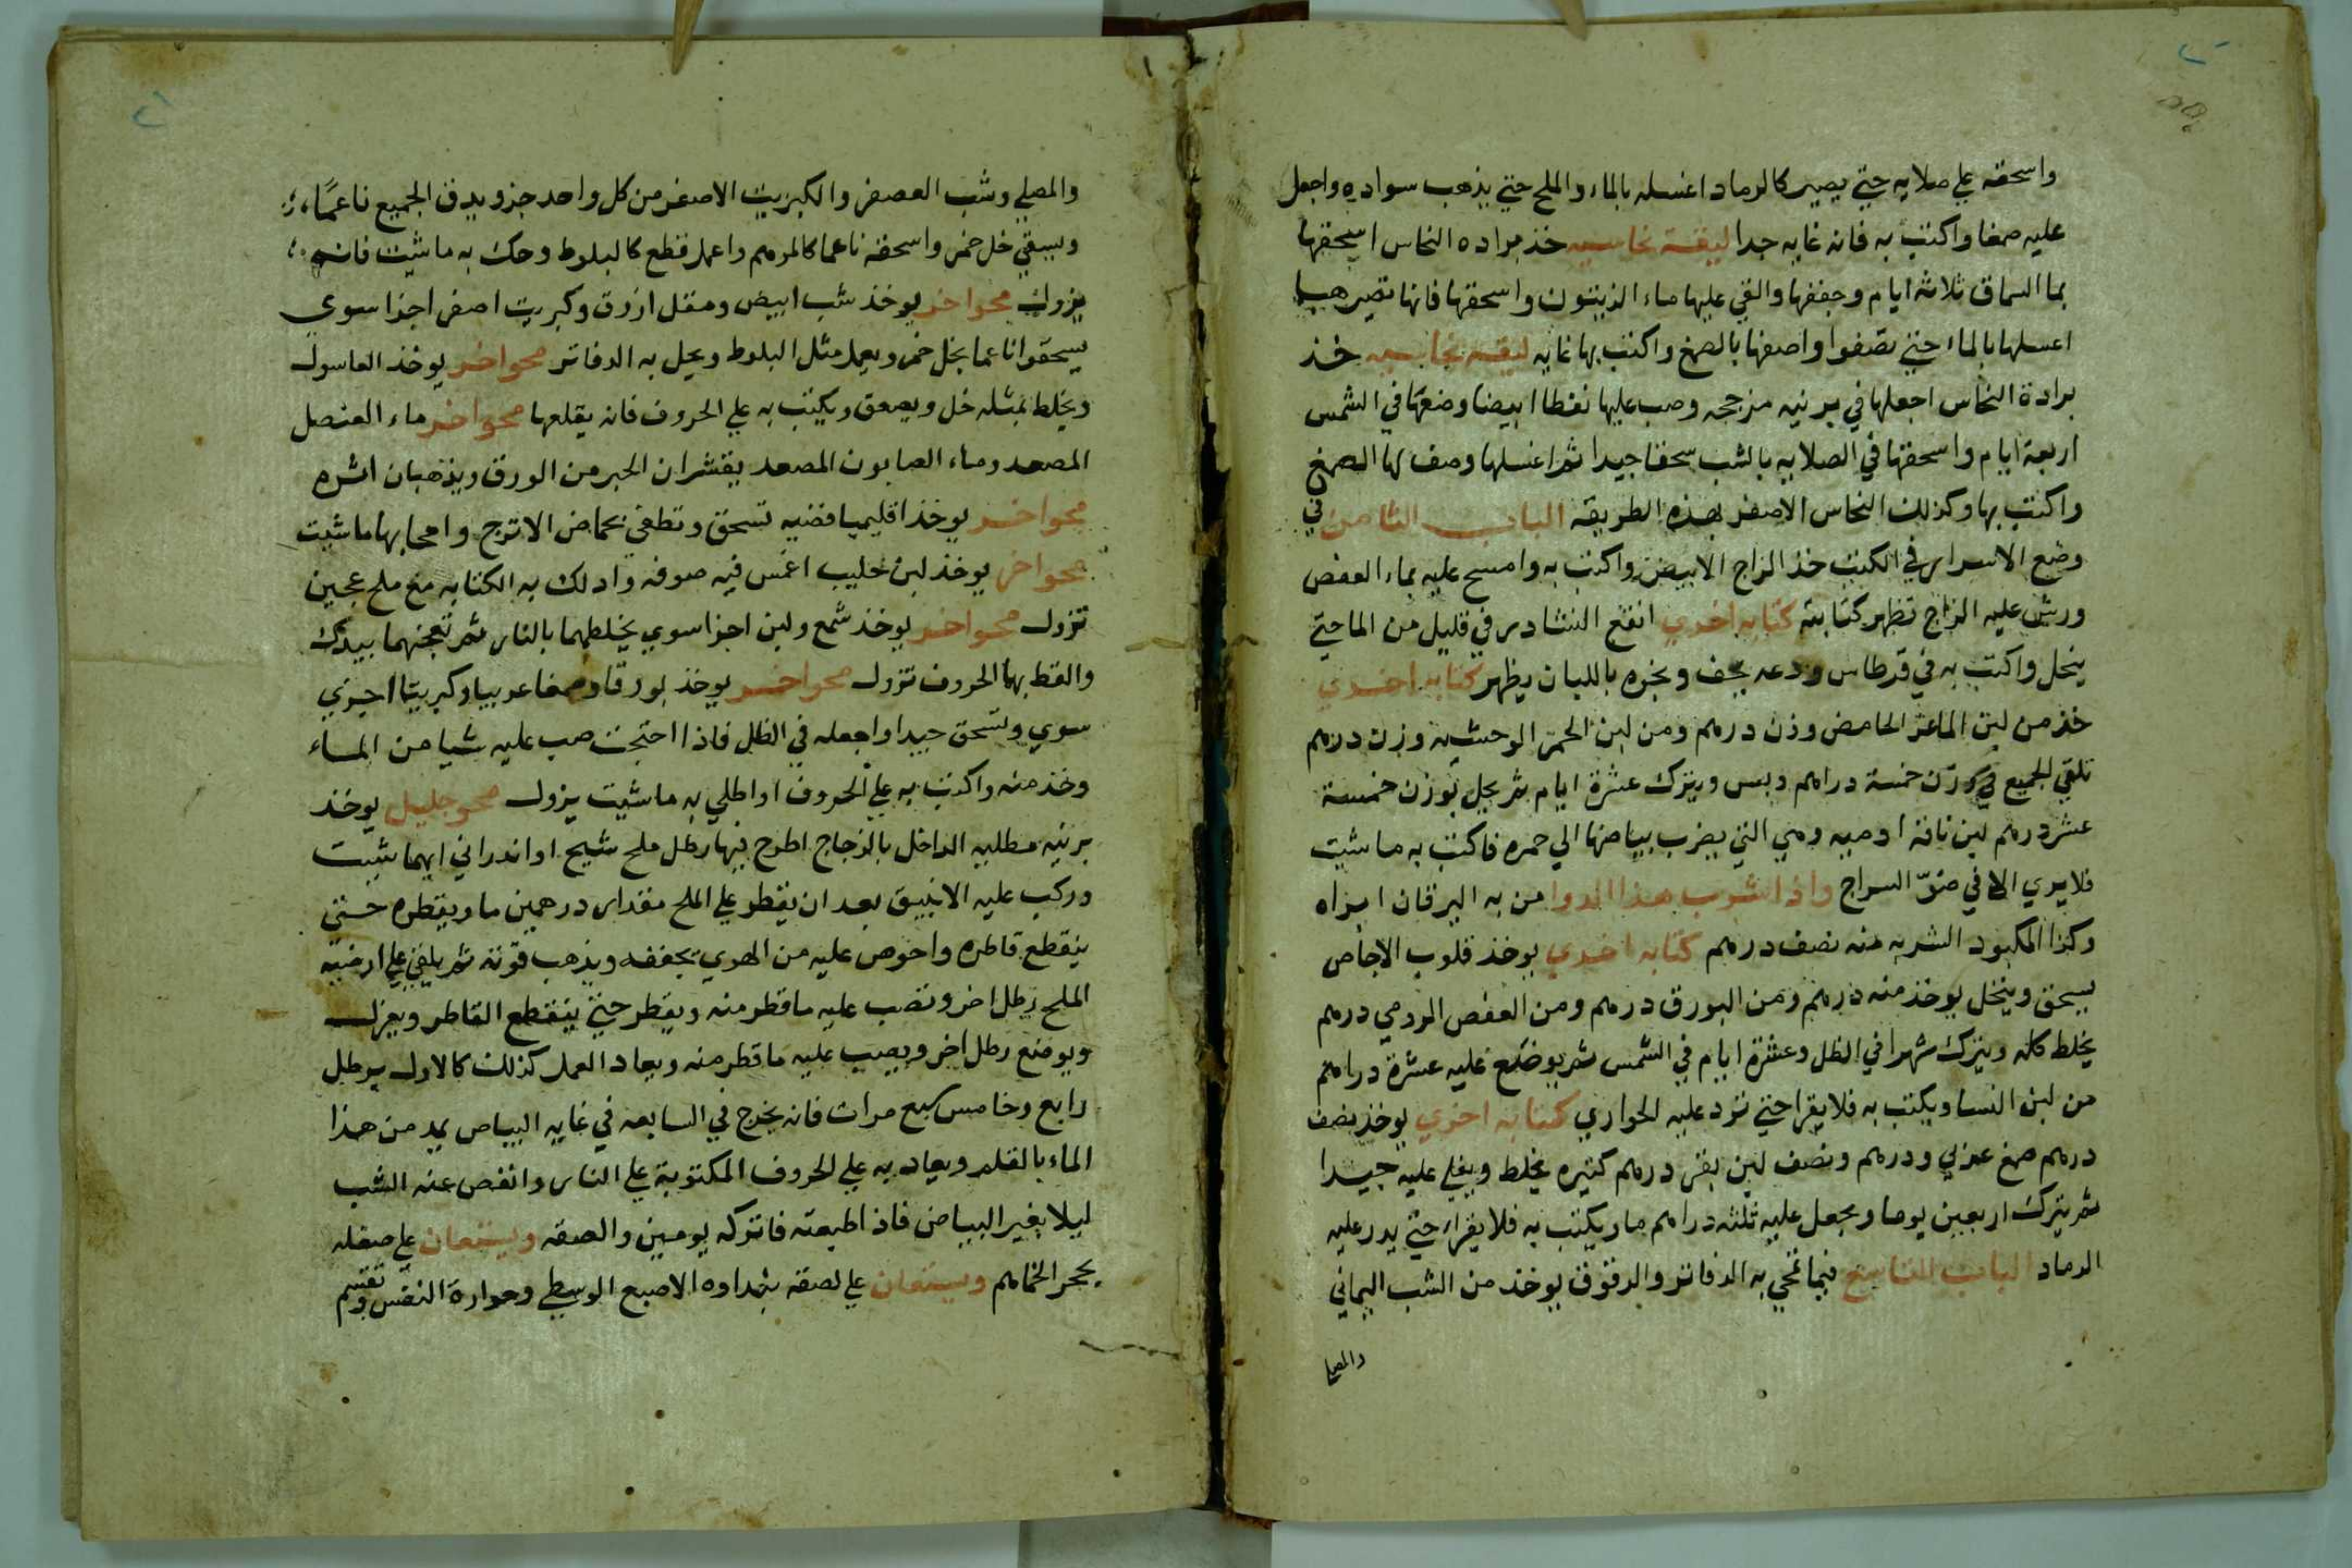 واسحقه علي صلايه حتي يصير كالرماد اغسله بالماء والملح حتي يذهب سواده واجعل
عليه صمغا واكتب به فانه غايه جدا ليقة نحاسيه خذ برادة النحاس اسحقها
بما السماق ثلاثة ايام وجففها والقي عليها ماء الزيتون واسحقها فانها تصير هبا
اغسلها بالماء حتي تصفوا واصفها بالصمغ واكتب بها غايه ليقه نحاسيه خذ
برادة النحاس اجعلها في برنيه مزججه وصب عليها نفطا ابيضا وضعها في الشمس
اربعة ايام واسحقها في الصلايه بالشب سحقا جيدا ثم اغسلها وصف لها الصمغ
واكتب بها وكذلك النحاس الاصفر بهذه الطريقه الباب الثامن في
وضع الاسرار في الكتب خذ الزاج الابيض واكتب به وامسح عليه بماء العفص
ورش عليه الزاج تظهر كتابته كتابه اخري انقع النشادر في قليل من الما حتي
ينحل واكتب به في قرطاس ودعه يجف وبخره باللبان يظهر كتابه اخري
خذ من لبن الماعز الحامض وزن درهم ومن لبن الحمر الوحشيه وزن درهم
تلقي الجميع في وزن خمسة دراهم دبس ويترك عشرة ايام ثم يحل بوزن خمسة
عشر درهم لبن ناقة ادميه وهي التي يضرب بياضها الي حمره فاكتب به ما شيت
فلا يري الا في ضوّ السراج واذا شرب هذا الدوا من به اليرقان ابراه
وكذا المكبود الشربه منه نصف درهم كتابه اخري يوخذ قلوب الاجاص
يسحق وينخل يوخذ منه درهم ومن البورق درهم ومن العفص الرومي درهم
يخلط كله ويترك شهرا في الظل وعشرة ايام في الشمس ثم يوضع عليه عشرة دراهم
من لبن النسا ويكتب به فلا يقرا حتي تزد عليه الحواري كتابه اخري يوخذ نصف
درهم صمغ عربي ودرهم ونصف لبن بقر درهم كثيره يخلط ويغلي عليه جيدا
ثم يترك اربعين يوما ويجعل عليه ثلثه دراهم ما ويكتب به فلا يقراء حتي يدر عليه
الرماد الباب التاسع فيما تمحي به الدفاتر والرقوق يوخذ من الشب اليماني
والمصلي
والمصلي وشب العصفر والكبريت الاصفر من كل واحد جزو يدق الجميع ناعمًا
ويسقي خل خمر واسحقه ناعما كالمرهم واعمله قطع كالبلوط وحك به ما شيت فانه
يزول محو اخر يوخذ شب ابيض ومقل ازرق وكبريت اصفر اجزا سوي
يسحقوا ناعما بخل خمر ويعمل مثل البلوط ويحل به الدفاتر محو اخر يوخذ الغاسول
ويخلط بمثله خل ويصعق ويكتب به علي الحروف فانه يقلعها محو اخر ماء العنصل
المصعد وماء الصابون المصعد يقشران الحبر من الورق ويذهبان اثره
محو اخر يوخذ اقليميا فضيه تسحق وتطفي بحماض الاترج وامحا بها ما شيت
محو اخر يوخذ لبن حليب اغمس فيه صوفه وادلك به الكتابه مع ملح عجين
تزول محو اخر يوخذ شمع ولبن اجزا سوي يخلطهما بالنار ثم تعجنهما بيدك
والقط بهما الحروف تزول محو اخر يوخذ بورقا وصمغا عربيا وكبريتا اجزي
سوي وتسحق جيدا واجعله في الظل فاذا احتجت صب عليه شيا من الماء
وخذ منه واكتب به علي الحروف او اطلي به ما شيت يزول محو جليل يوخذ
برنيه مطليه الداخل بالزجاج اطرح فيها رطل ملح شيح او اندراني ايهما شيت
وركب عليه الانبيق بعد ان يقطر علي الملح مقدار درهمين ما ويقطره حتي
ينقطع قاطره واحرص عليه من الهوي يجففه ويذهب قوته ثم يلقي علي ارضيته
الملح رطل اخر وتصب عليه ما قطر منه ويقطر حتي ينقطع القاطر ويعزل
ويوضع رطل اخر ويصب عليه ما قطر منه ويعاد العمل كذلك كالاول برطل
رابع وخامس سبع مرات فانه يخرج في السابعه في غايه البياض يمد من هذا
الماء بالقلم ويعاد به علي الحروف المكتوبة علي النار وانفض عنه الشب
ليلا يغير البياض فاذا اطبعته فاتركه يومين والصقه ويستعان علي صقله
بحجر الخماهم ويستعان علي لصقه بنداوه الاصبع الوسطي وحرارة النفس وتقسم